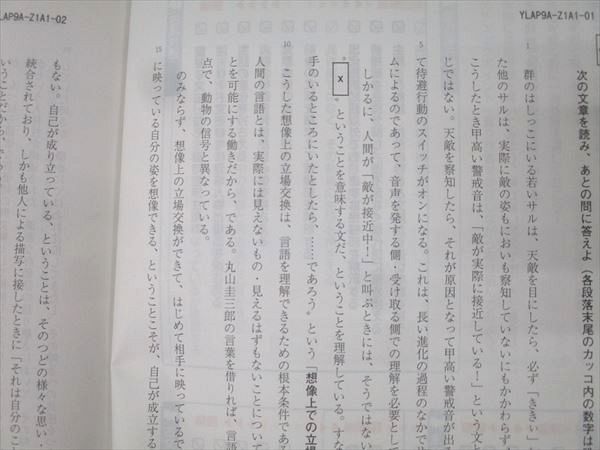 YLAP9A-Z1A1-01
次の文章を読み、あとの問に答えよ（各段落末尾のカッコ内の数字は
1
群のはしっこにいる若いサルは、天敵を目にしたら、必ず「ききぃ」
た他のサルは、実際に敵の姿もにおいも察知していないにもかかわらず
こうしたとき甲高い警戒音は、「敵が実際に接近している！」という文と
じではない。天敵を察知したら、それが原因となって甲高い警戒音が出る
5
て待避行動のスイッチがオンになる。これは、長い進化の過程のなかで
ムによるのであって、音声を発する側・受け取る側での理解を必要として
しかるに、人間が「敵が接近中！」と叫ぶときには、そうではない
x
ということを意味する文だ、ということを理解している。すな
手のいるところにいたとしたら、……であろう〟という「想像上での立場
10
こうした想像上の立場交換は、言語を理解できるための根本条件である
人間の言語とは、実際には見えないもの・見えるはずもないことについて
とを可能にする働きだから、である。丸山圭三郎の言葉を借りれば、言語
点で、動物の信号と異なっている。
のみならず、想像上の立場交換ができて、はじめて相手に映っている
15
に映っている自分の姿を想像できる、ということこそが、自己が成立する
LAP9A-Z1A1-02
もない。自己が成り立っている、ということは、そのつどの様々な思い・
統合されており、しかも他人による描写に接したときに「それは自分のこ